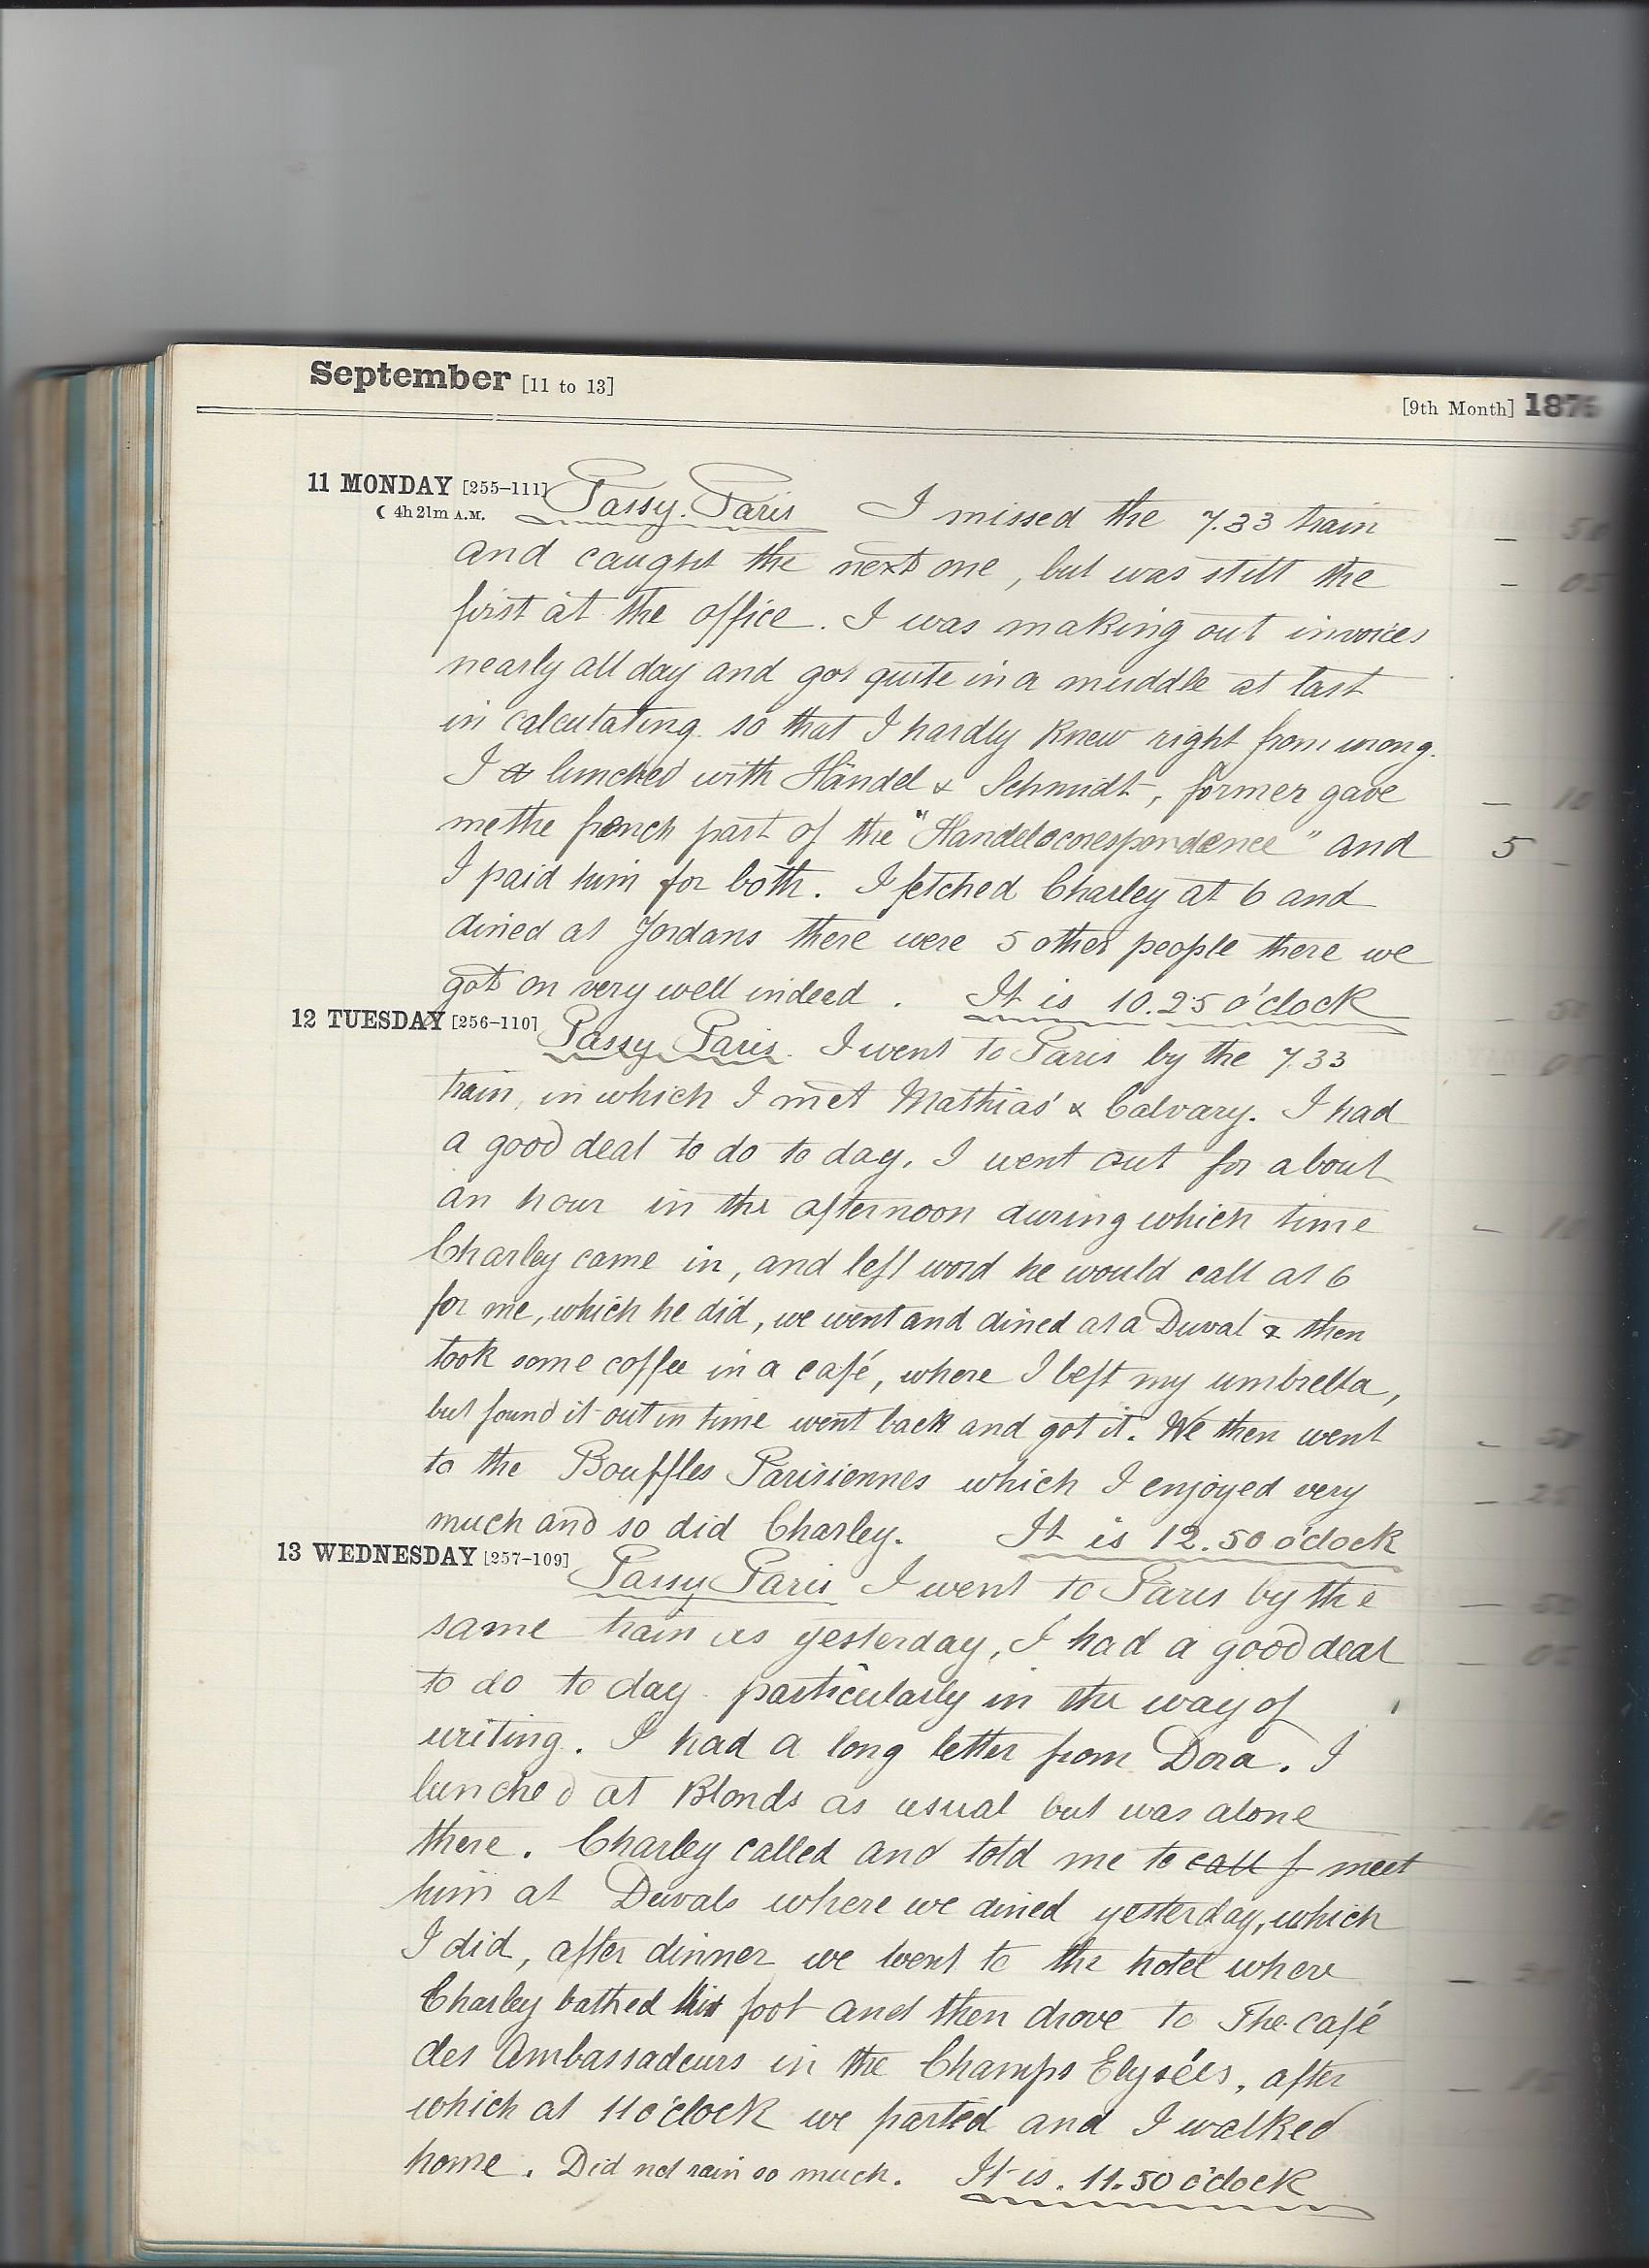 September [11 to 13]
[9th Month] 1876
11 MONDAY [255–111] Passy. Paris I missed the 7.33 train
☾ 4h 21m A.M.
and caught the next one, but was still the
first at the office. I was making out invoices
nearly all day and got quite in a muddle at last
in calculating so that I hardly knew right from wrong.
I lunched with Händel & Schmidt, former gave
me the french part of the "Handelscorrespondence" and 5 –
I paid him for both. I fetched Charley at 6 and
dined at Jordans there were 5 other people there we
got on very well indeed. It is 10.25 o'clock
12 TUESDAY [256–110] Passy Paris. I went to Paris by the 7.33
train, in which I met Mathias & Calvary. I had
a good deal to do to day. I went out for about
an hour in the afternoon during which time
Charley came in, and left word he would call at 6
for me, which he did, we went and dined at a Duval & then
took some coffee in a café, where I left my umbrella,
but found it out in time went back and got it. We then went
to the Bouffles Parisiennes which I enjoyed very
much and so did Charley. It is 12.50 o'clock
13 WEDNESDAY [257–109] Passy Paris I went to Paris by the
same train as yesterday, I had a good deal
to do to day particularly in the way of
writing. I had a long letter from Dora. I
lunched at Blonds as usual but was alone
there. Charley called and told me to call f meet
him at Duvals where we dined yesterday, which
I did, after dinner we went to the hotel where
Charley bathed his foot and then drove to The café
des Ambassadeurs in the Champs Elysées, after
which at 11 o'clock we parted and I walked
home. Did not rain so much. It is. 11.50 o'clock